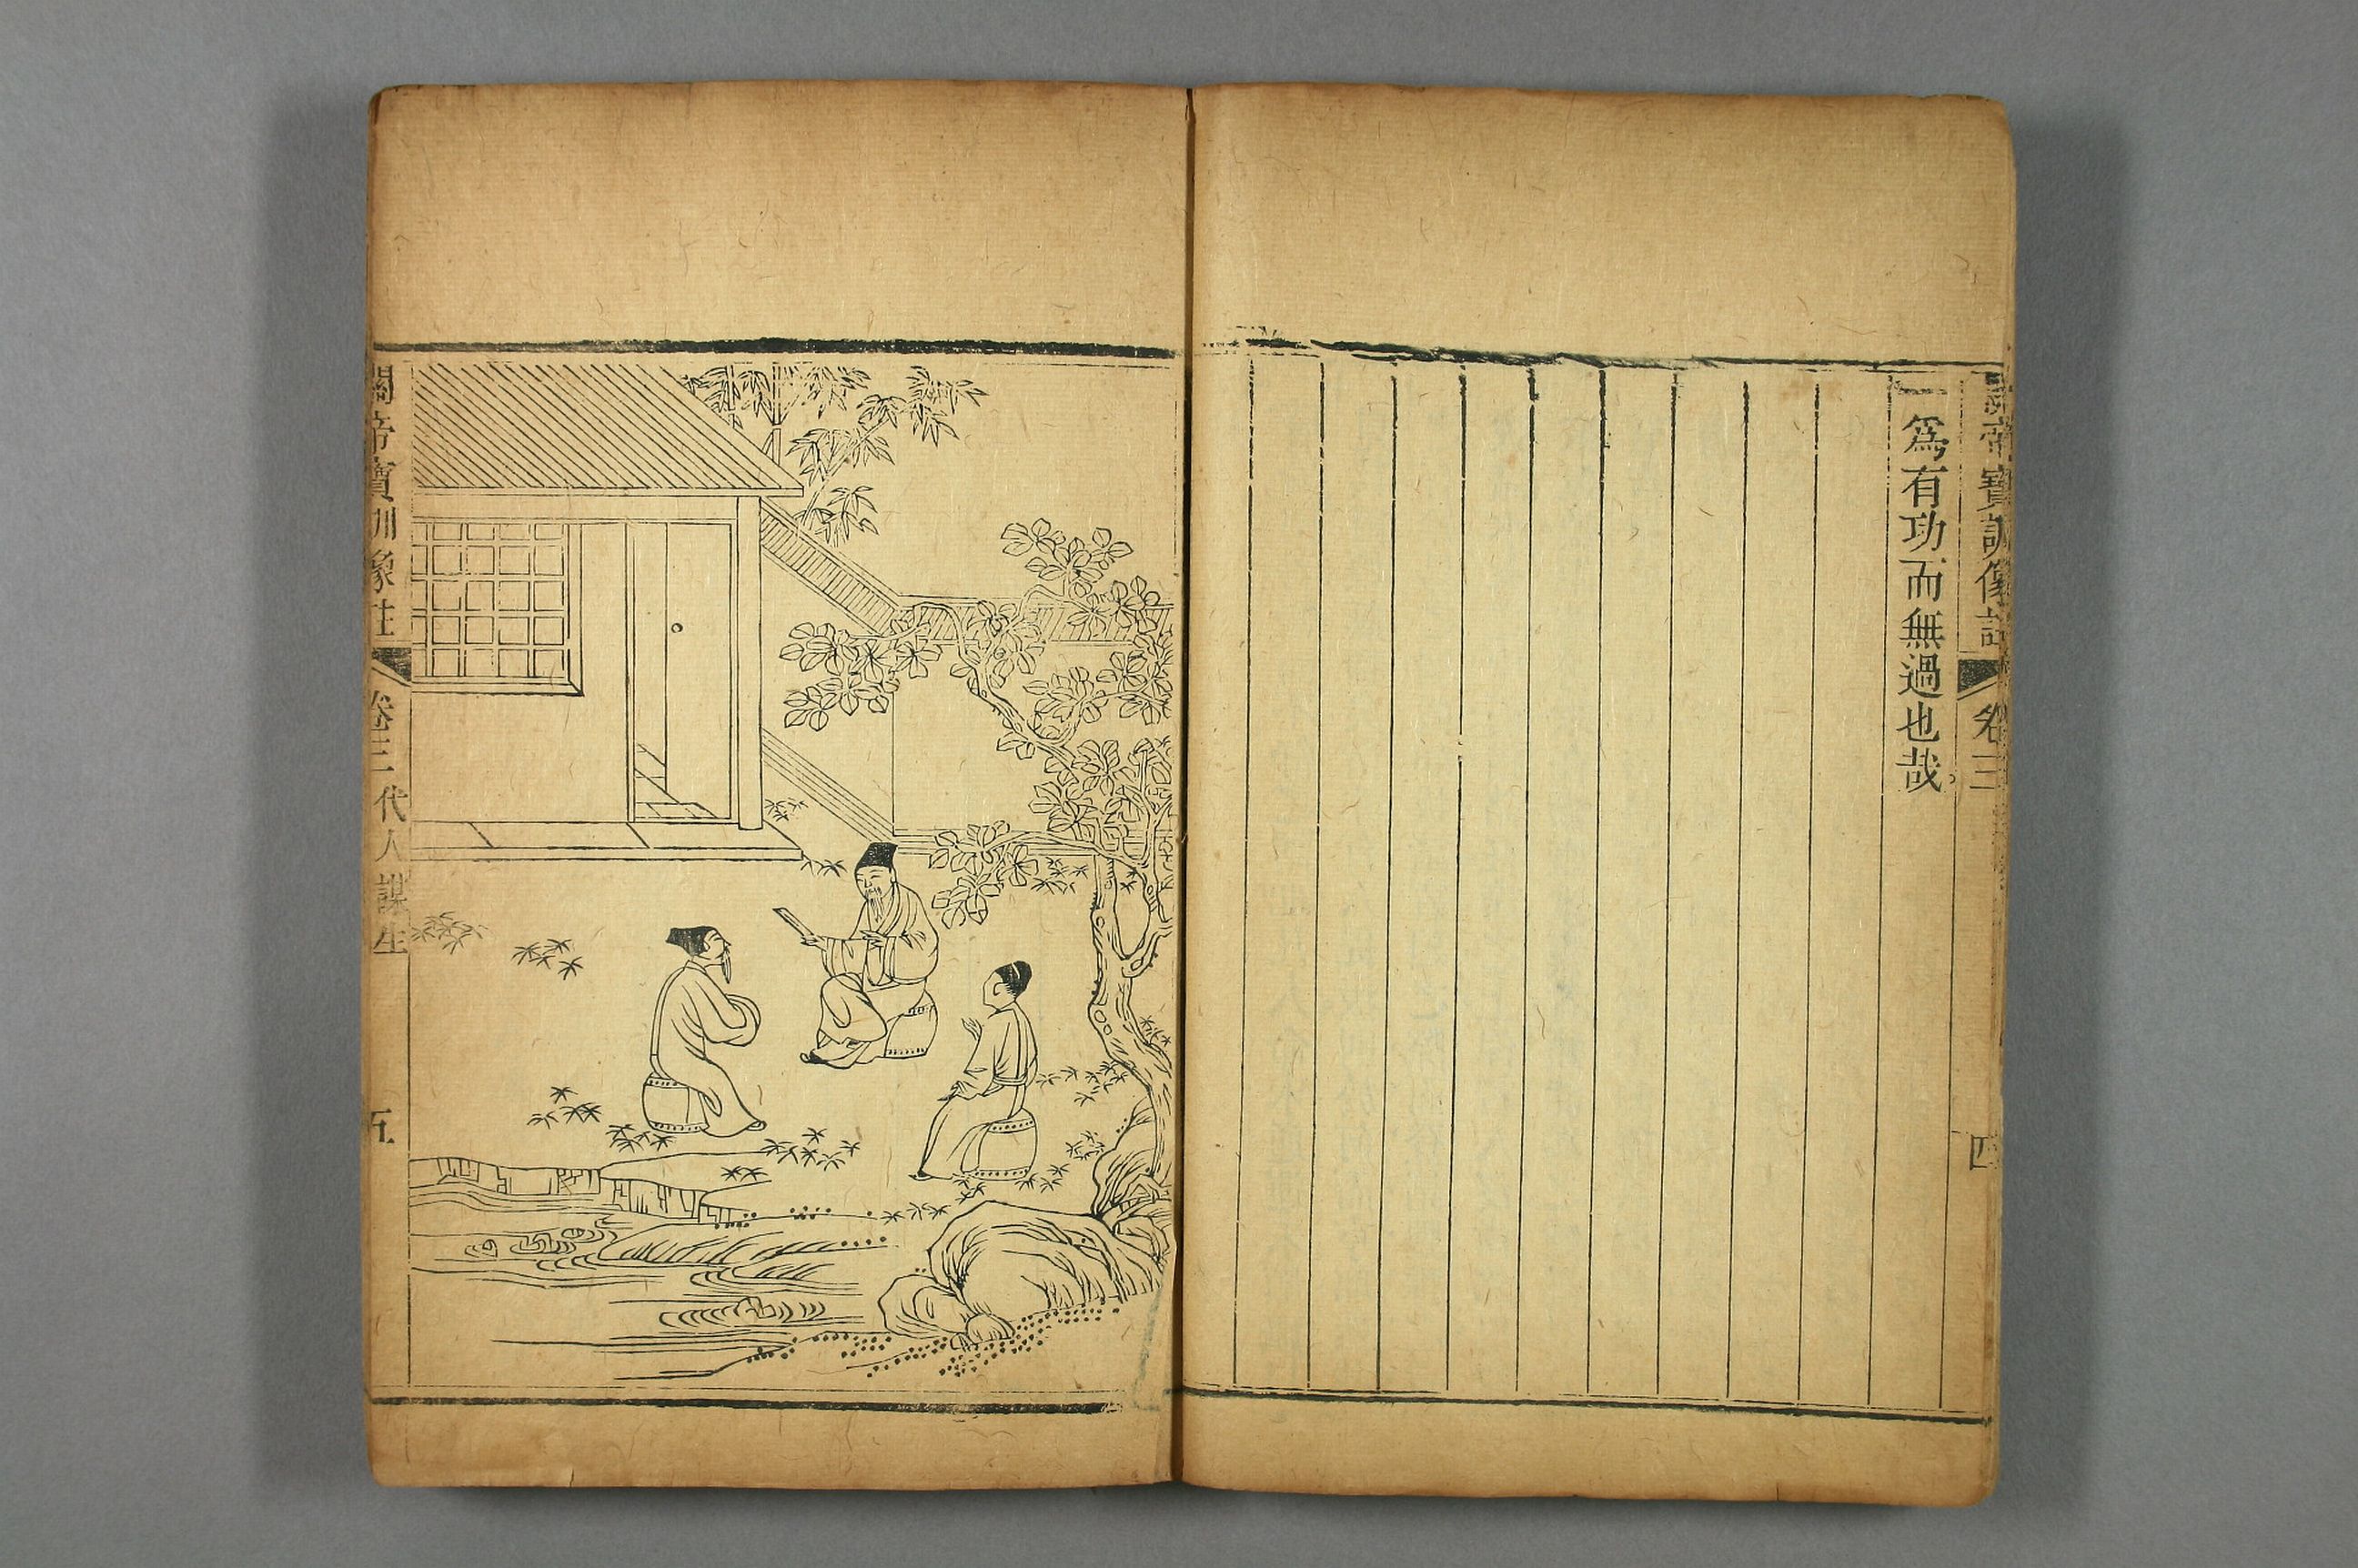 帝寶訓像註 卷三 四
一爲有功而無過也哉。
關帝寶訓像註 卷三 代人謀生 五